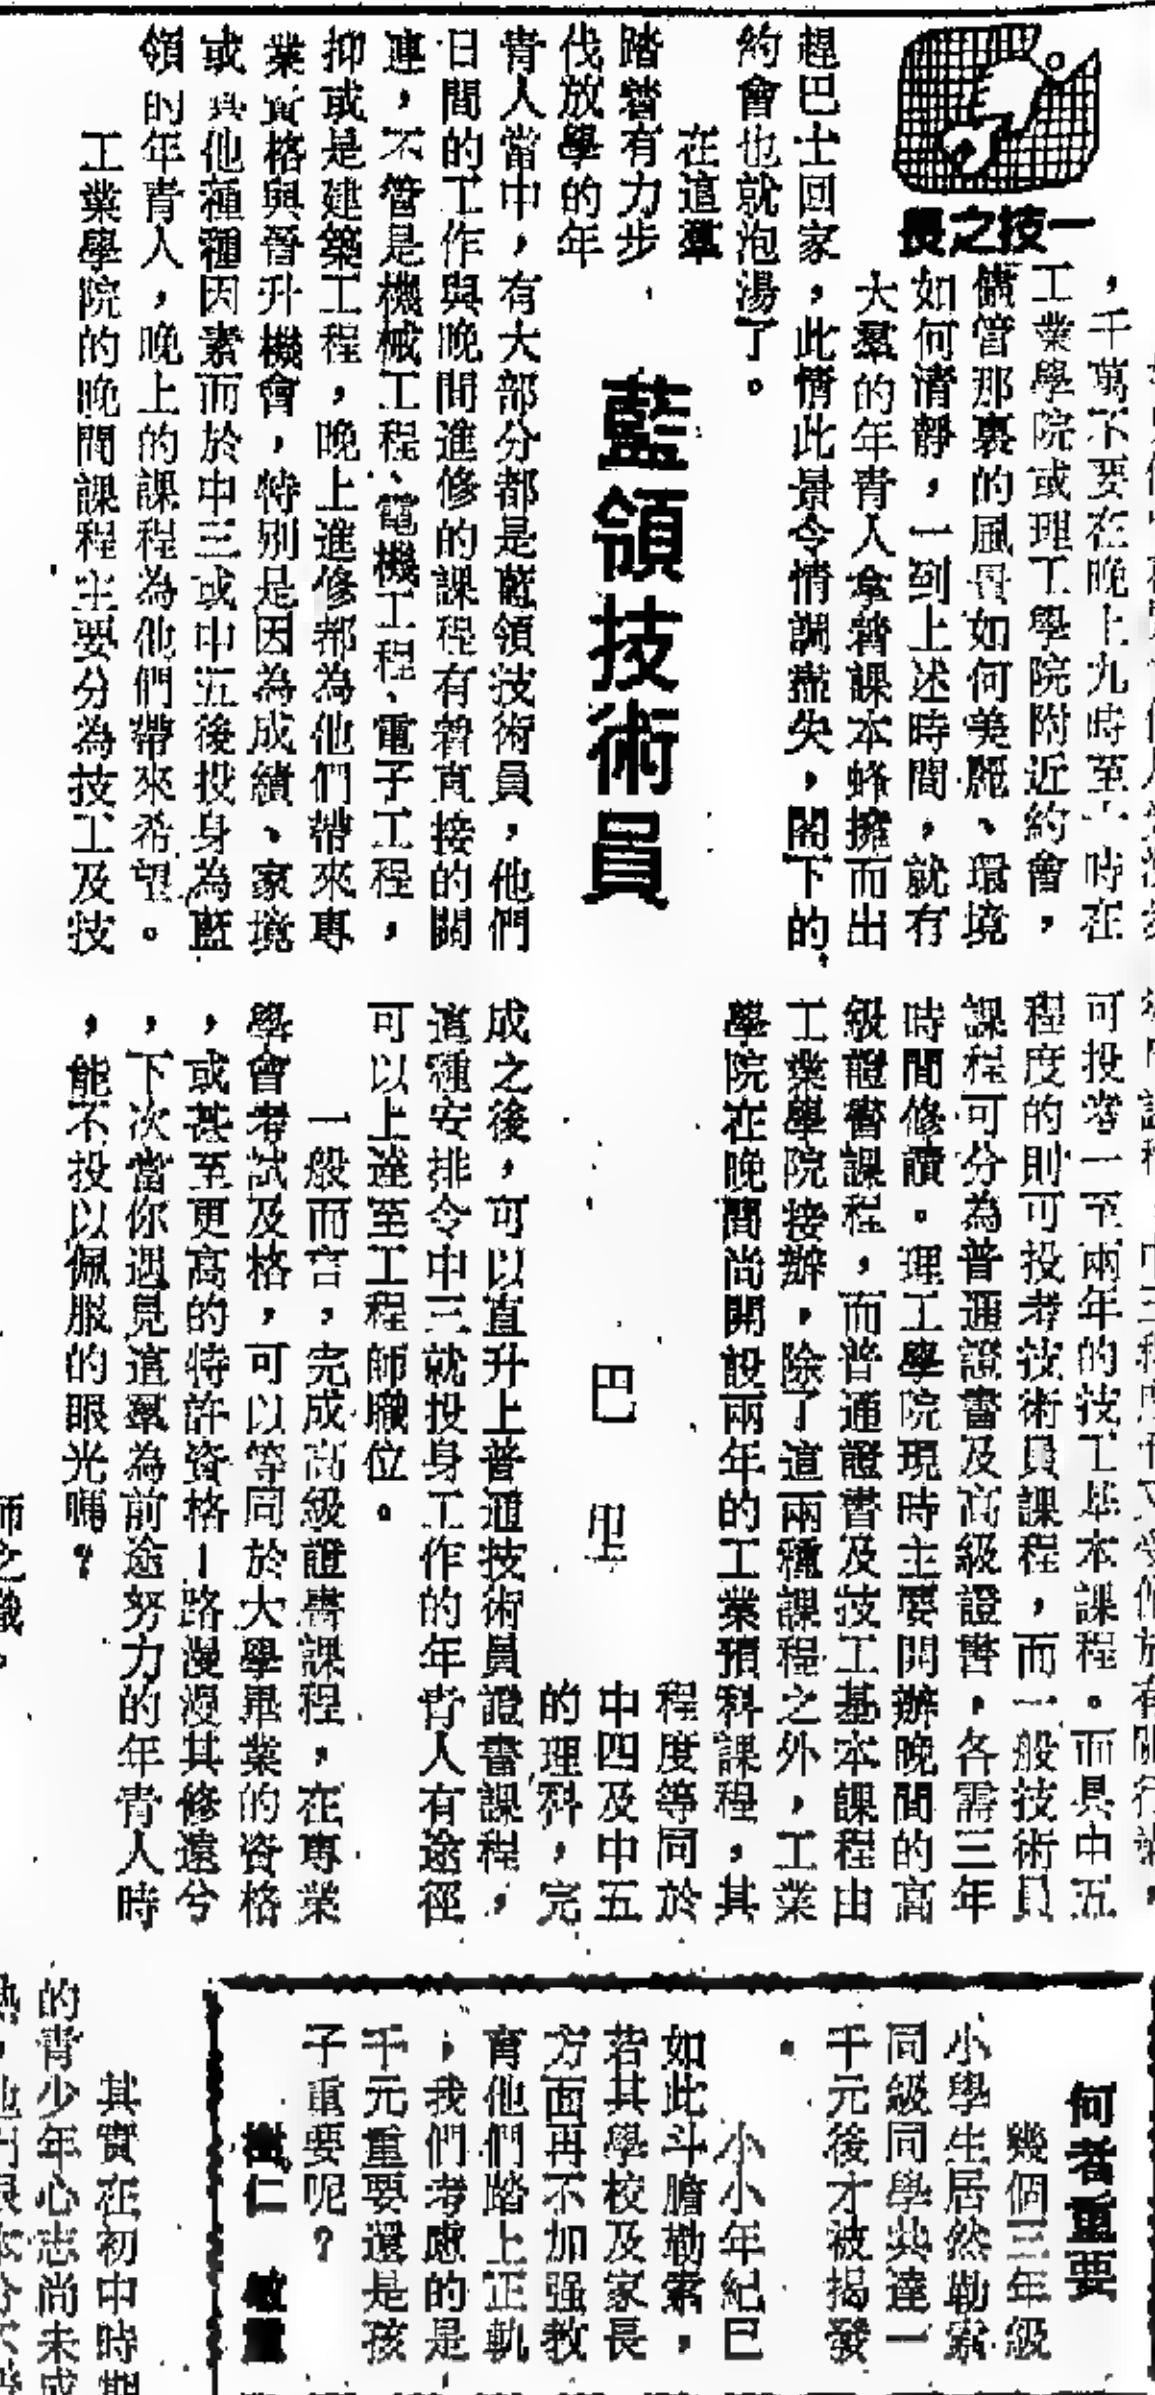 一技之長
藍領技術員
巴
，千萬不要在晚上九時至十時在
工業學院或理工學院附近約會，
儘管那裏的風景如何美麗、環境
如何清靜，一到上述時間，就有
大羣的年青人拿着課本蜂擁而出
趕巴士回家，此情此景令情調盡失，閣下的
約會也就泡湯了。
在這羣
踏着有力步
伐放學的年
青人當中，有大部分都是藍領技術員，他們
日間的工作與晚間進修的課程有着直接的關
連，不管是機械工程、電機工程、電子工程，
抑或是建築工程，晚上進修都為他們帶來專
業資格與晉升機會，特別是因為成績、家境
或其他種種因素而於中三或中五後投身為藍
領的年青人，晚上的課程為他們帶來希望。
工業學院的晚間課程主要分為技工及技
可投考一至兩年的技工基本課程。而具中五
程度的則可投考技術員課程，而一般技術員
課程可分為普通證書及高級證書，各需三年
時間修讀。理工學院現時主要開辦晚間的高
級證書課程，而普通證書及技工基本課程由
工業學院接辦，除了這兩種課程之外，工業
學院在晚間尚開設兩年的工業預科課程，其
程度等同於
中四及中五
的理科，完
成之後，可以直升上普通技術員證書課程，
這種安排令中三就投身工作的年青人有途徑
可以上達至工程師職位。
一般而言，完成高級證書課程，在專業
學會考試及格，可以等同於大學畢業的資格
，或甚至更高的特許資格—路漫漫其修遠兮
，下次當你遇見這羣為前途努力的年青人時
，能不投以佩服的眼光嗎？
師之職。
何者重要
幾個三年級
小學生居然勒索
同級同學共達一
千元後才被揭發
。
小小年紀已
如此斗膽勒索，
若其學校及家長
方面再不加強教
育他們踏上正軌
，我們考慮的是
千元重要還是孩
子重要呢？
樹仁
其實在初中時期
的青少年心志尚未成